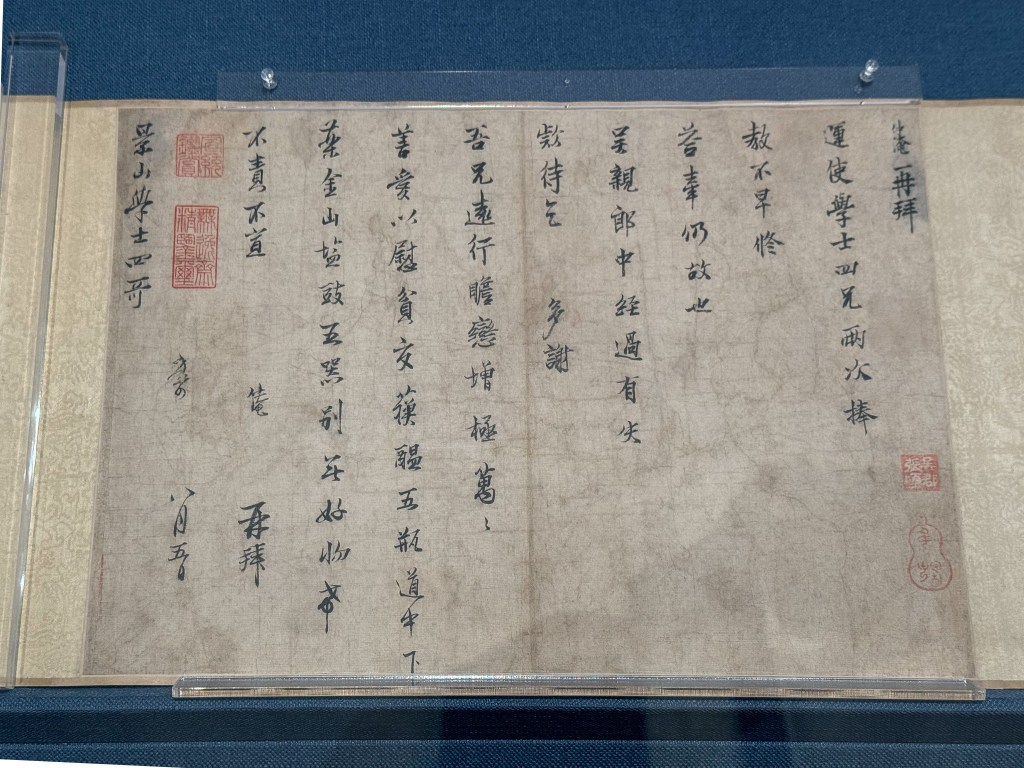 仲淹再拜
運使學士四兄兩次捧
教不早修
荅奉仍故也
吳親郎中經過有失
欵待乞 多謝
吾兄遠行瞻戀增極萬〻
善愛以慰貧交蘓醖五瓶道中下
藥金山塩豉五器别無好物希
不責不宣 仲淹 再拜
景山學士四哥 八月五日